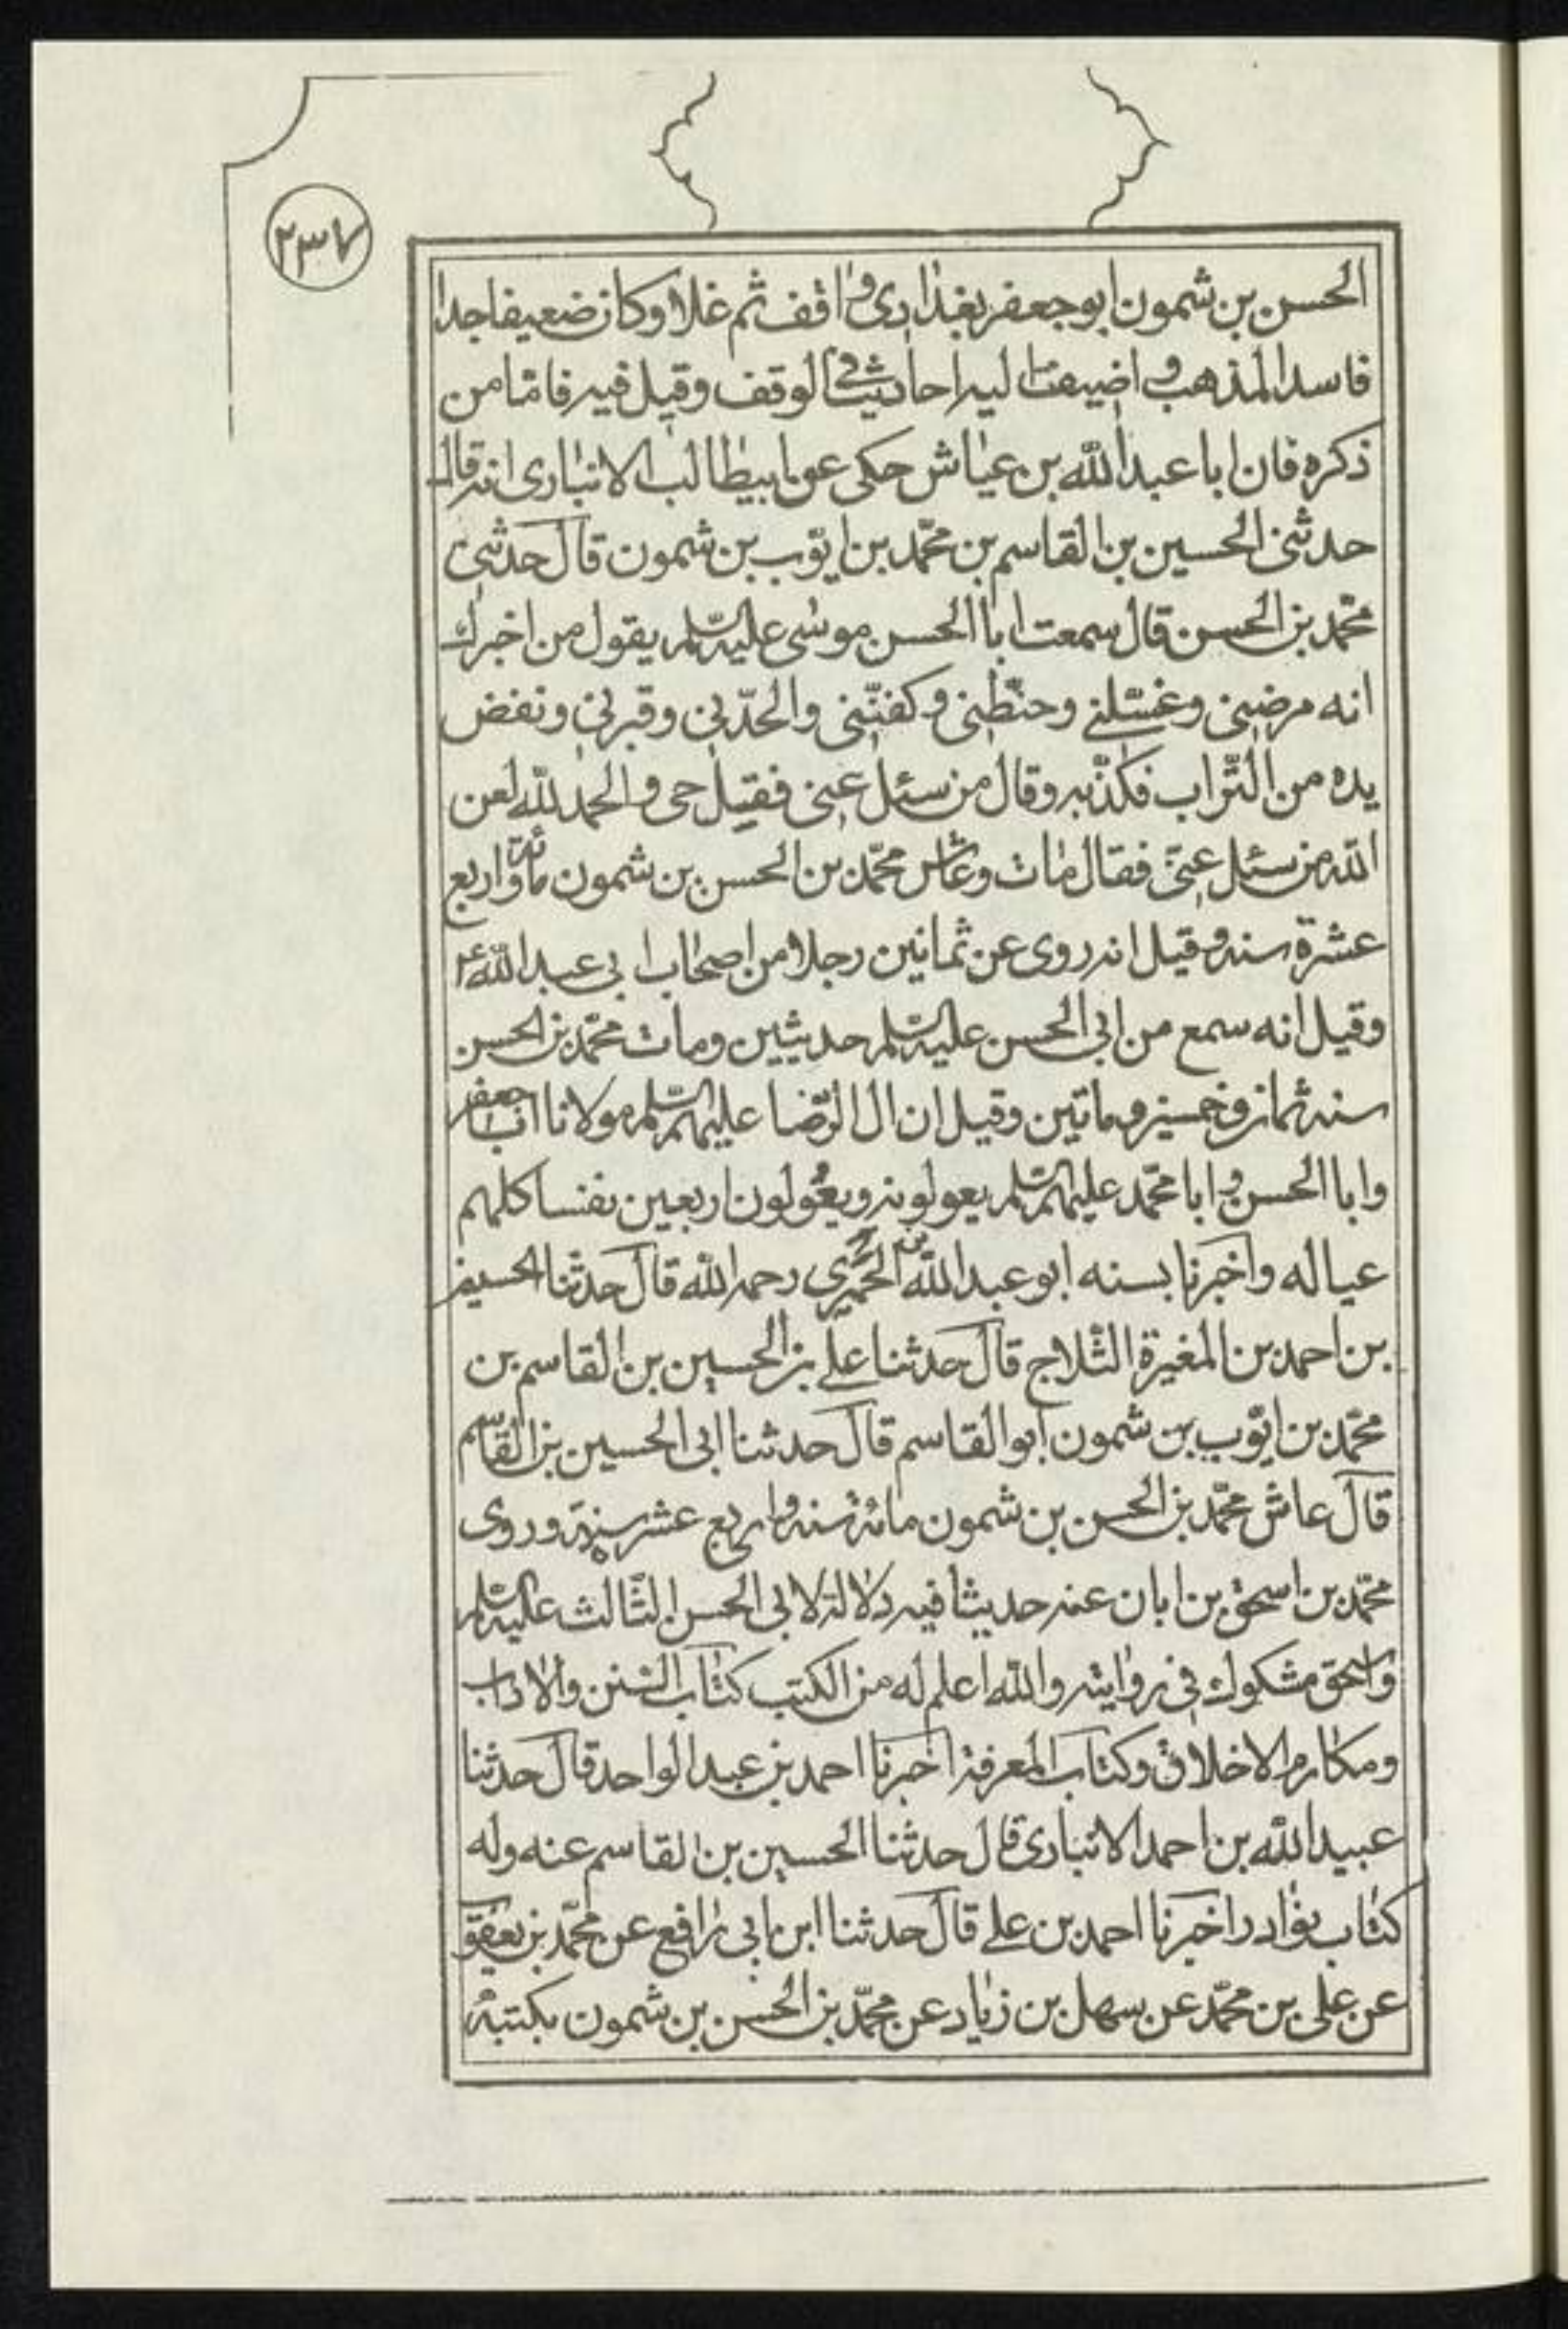 ٢٣٧
الحسن بن شمون ابو جعفر بغدادی واقف ثم غلا وكان ضعيفا جدا
فاسد المذهب و اضيفت اليه احاديث في الوقف وقيل فيه فاما من
ذكره فان ابا عبد الله بن عياش حكى عن ابيطالب الانباری انه قال
حدثنی الحسين بن القاسم بن محمّد بن ايّوب بن شمون قال حدثنی
محمّد بن الحسن قال سمعت ابا الحسن موسى عليه السّلم يقول من اخبرك
انه مرضنی وغسّلنے وحنّطنی وكفنّنی والحدّنی وقبرنی ونفض
يده من التّراب فكذّبه وقال من سئل عنی فقيل حی والحمد لله لعن
الله من سئل عنّی فقال مات وعاش محمّد بن الحسن بن شمون مأئة واربع
عشرة سنه وقيل انه روی عن ثمانين رجلا من اصحاب ابی عبد الله ع
وقيل انه سمع من ابی الحسن عليه السّلم حديثين ومات محمّد بن الحسن
سنه ثمان وخمسين وماتين وقيل ان ال الرّضا عليهم السّلم مولانا ابا جعفر
وابا الحسن و ابا محمّد عليهم السّلم يعولونه ويعُولون اربعين نفسا كلهم
عياله واخبرنا بسنه ابو عبد الله بن الخمری رحمه الله قال حدثنا الحسين
بن احمد بن المغيرة الثّلاج قال حدثنا علے بن الحسين بن القاسم بن
محمّد بن ايّوب بن شمون ابو القاسم قال حدثنا ابی الحسين بن القاسم
قال عاش محمّد بن الحسن بن شمون مائة سنه واربع عشر سنة وروی
محمّد بن اسحق بن ابان عنه حديثا فيه دلالة لابی الحسن الثّالث عليه السّلم
واسحق مشكوك فی روايته والله اعلم له من الكتب كتاب السّنن والاداب
ومكارم الاخلاق وكتاب المعرفة اخبرنا احمد بن عبد الواحد قال حدثنا
عبيد الله بن احمد الانباری قال حدثنا الحسين بن القاسم عنه وله
كتاب نوادر اخبرنا احمد بن علے قال حدثنا ابن ابی رافع عن محمّد بن يعقوب
عن علی بن محمّد عن سهل بن زياد عن محمّد بن الحسن بن شمون بكتبه